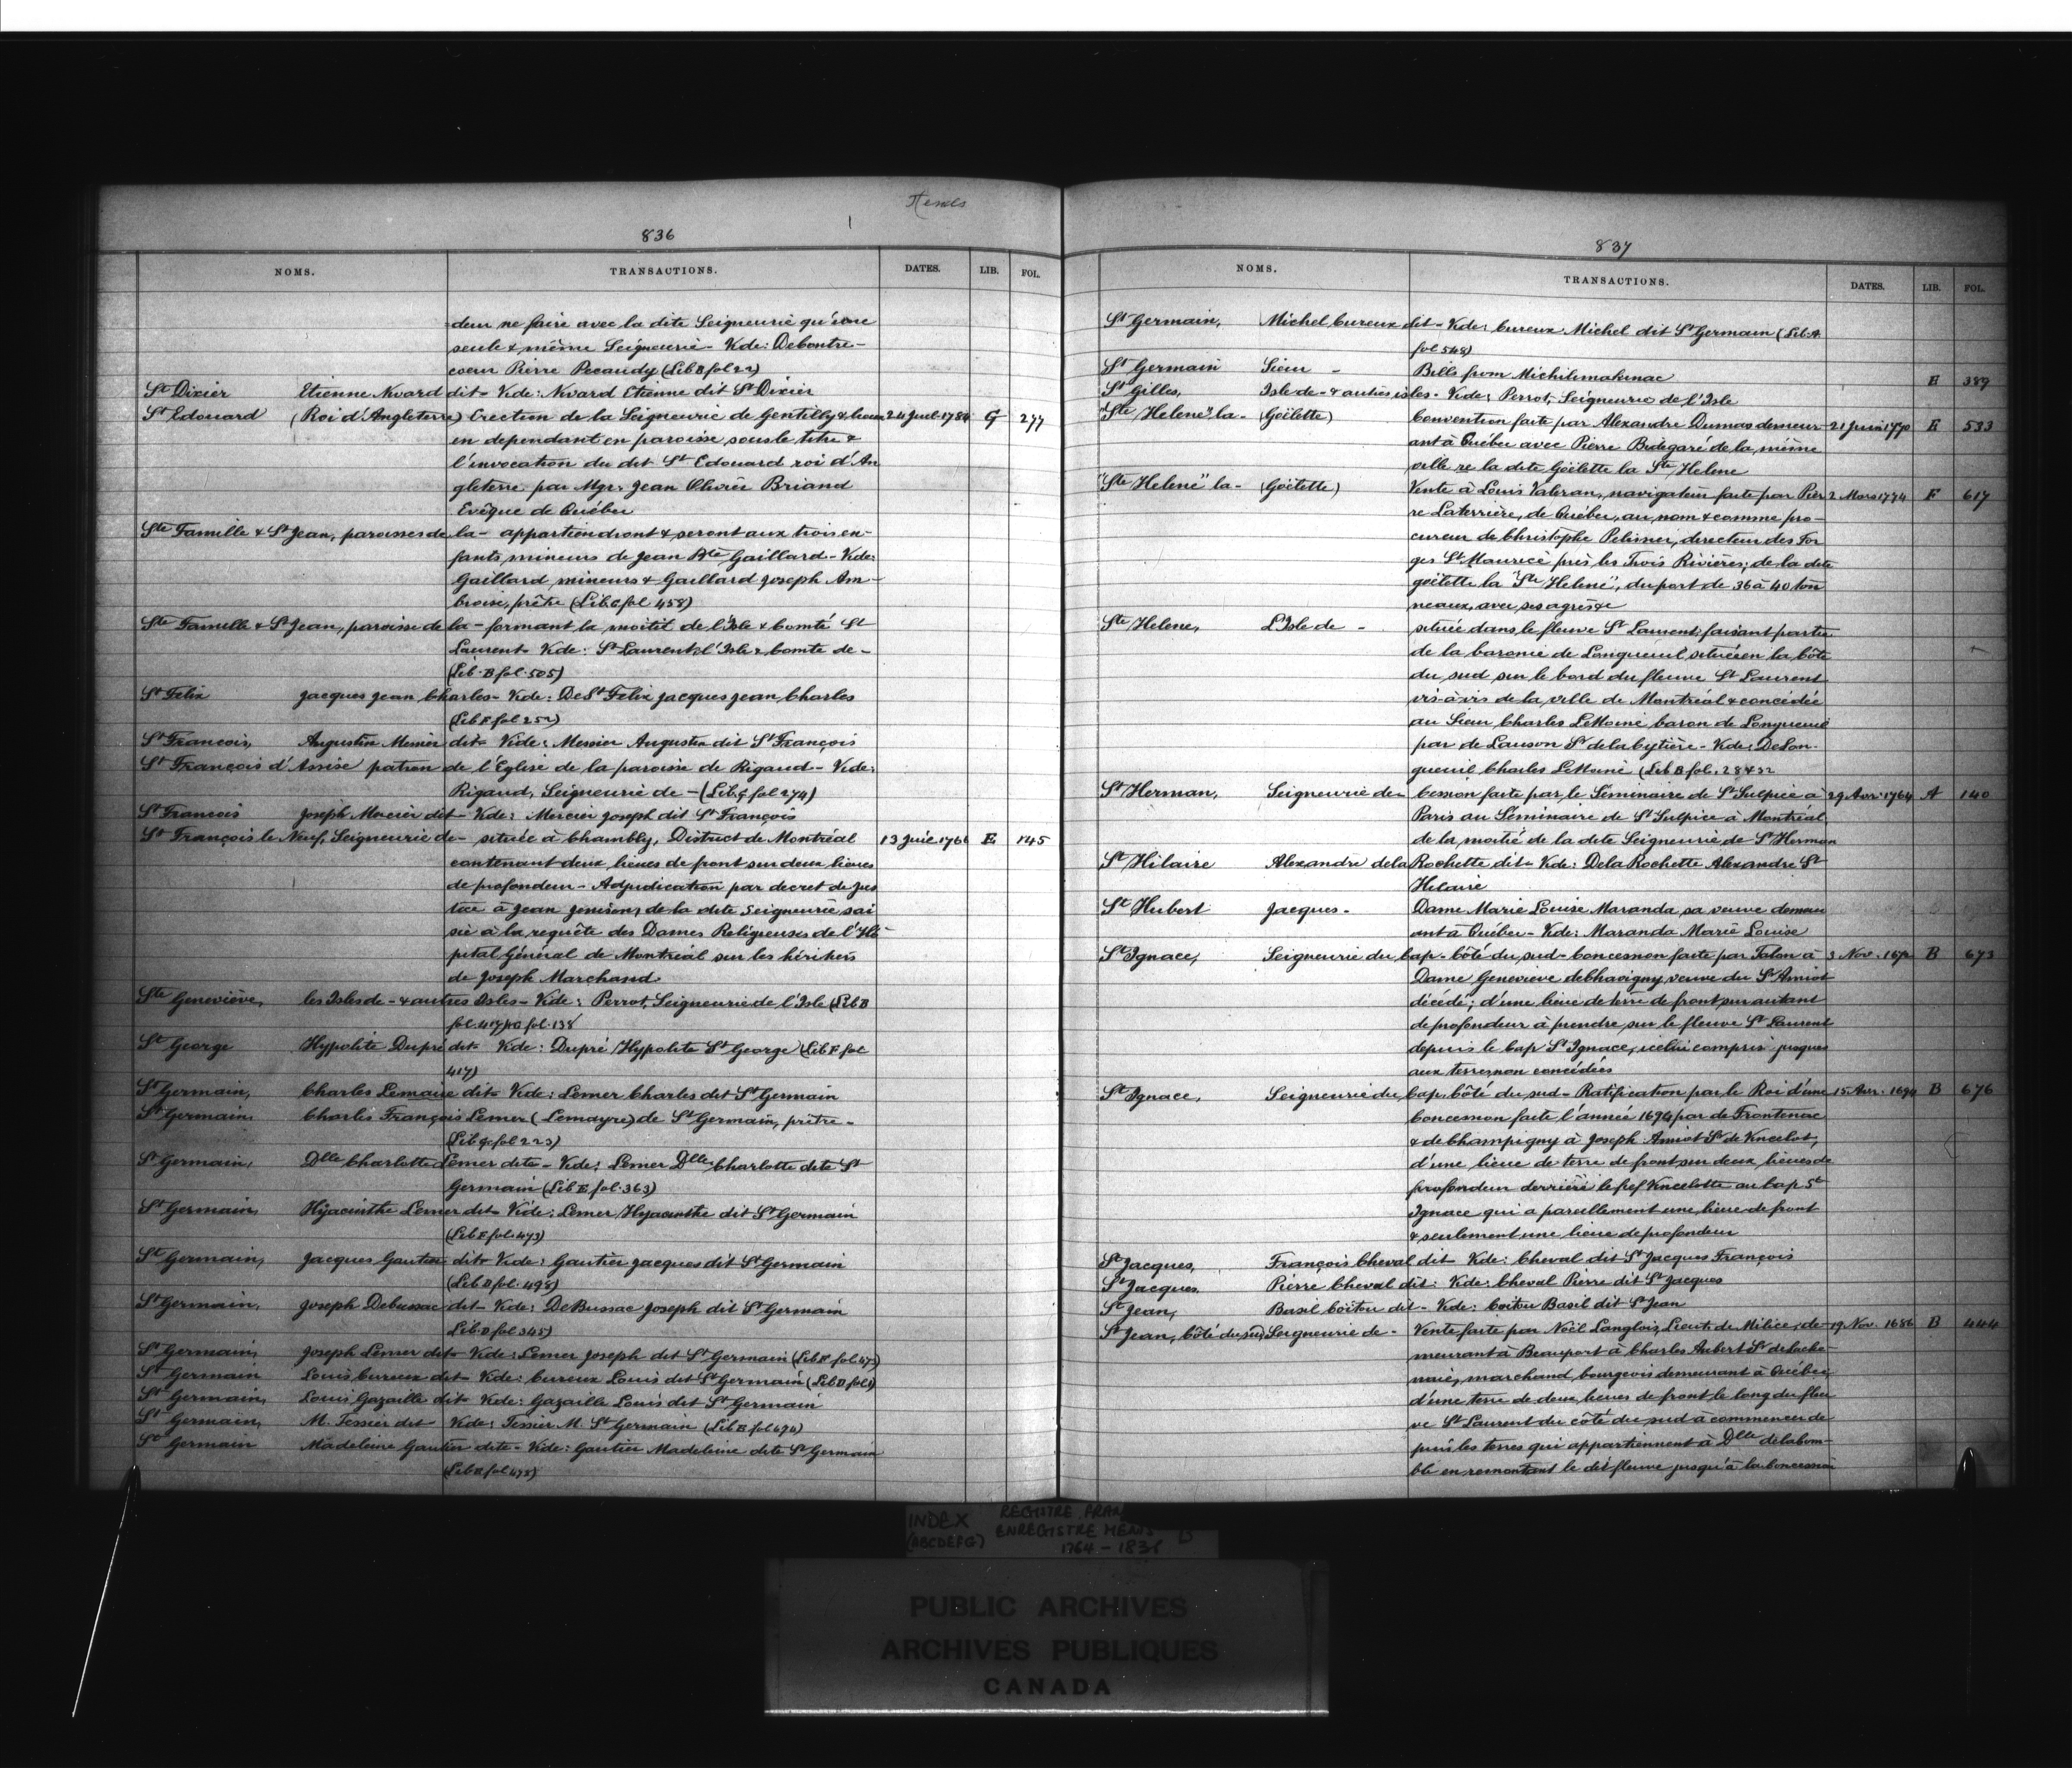 836
NOMS. TRANSACTIONS. DATES. LIB. FOL.
deur ne faire avec la dite Seigneurie qu'une
seule & même Seigneurie - Vide: Debontre-
coeur Pierre Pecaudy (Lib B fol 22)
St Dixier Etienne Nvard dit - Vide: Nvard Etienne dit St Dixier
St Edouard (Roi d'Angleterre) Erection de la Seigneurie de Gentilly & lieux 24 Juil. 1784 G 277
en dependant en paroisse sous le titre &
l'invocation du dit St Edouard roi d'An
gleterre par Mgr. Jean Olivier Briand
Evêque de Québec
Ste Famille & St Jean, paroisses de la - appartiendront & seront aux trois en-
fants mineurs de Jean Bte Gaillard - Vide:
Gaillard mineurs & Gaillard Joseph Am-
broise, prêtre (Lib C fol 458)
Ste Famille & St Jean, paroisse de la - formant la moitié de l'Isle & Comté St
Laurent - Vide: St Laurent l'Isle & Comté de -
(Lib. B fol. 505)
St Felix Jacques Jean Charles - Vide: De St Felix Jacques Jean Charles
(Lib E fol 252)
St Francois, Augustin Messier dit - Vide: Messier Augustin dit St François
St François d'Assise patron de l'Eglise de la paroisse de Rigaud - Vide:
Rigaud, Seigneurie de - (Lib. G fol 274)
St Francois Joseph Mercier dit - Vide: Mercier Joseph dit St François
St François le Neuf, Seigneurie de - située à Chambly, District de Montréal 13 Juil. 1766 E 145
contenant deux lieues de front sur deux lieues
de profondeur - Adjudication par decret de Jus
tice à Jean Jenison, de la dite Seigneurie sai
sie à la requête des Dames Religieuses de l'Hô-
pital Général de Montréal sur les héritiers
de Joseph Marchand
Ste Geneviève, les Isles de - & autres Isles - Vide: Perrot, Seigneurie de l'Isle (Lib B
fol. 417) fol. 138
St George Hypolite Dupré dit - Vide: Dupré Hypolite St George (Lib F fol
417)
St Germain, Charles Lemaire dit - Vide: Lemer Charles dit St Germain
St Germain, Charles François Lemer (Lemayre) de St Germain, prêtre -
(Lib G fol 223)
St Germain, Dlle Charlotte Lemer dite - Vide: Lemer Dlle Charlotte dite St
Germain (Lib E fol. 363)
St Germain, Hijacinthe Lemer dit - Vide: Lemer Hyacinthe dit St Germain
(Lib F fol. 473)
St Germain, Jacques Gautier dit - Vide: Gautier Jacques dit St Germain
(Lib. D fol. 498)
St Germain, Joseph Debussac dit - Vide: DeBussac Joseph dit St Germain
Lib. D fol 345)
St Germain, Joseph Lemer dit - Vide: Lemer Joseph dit St Germain (Lib F fol 473
St Germain Louis Cureux dit - Vide: Cureux Louis dit St Germain (Lib D fol
St Germain, Louis Gazaille dit - Vide: Gazaille Louis dit St Germain
St Germain, M. Tessier dit - Vide: Tessier M. St Germain (Lib B fol 674)
St Germain Madeleine Gautier dite - Vide: Gautier Madeleine dite St Germain
(Lib D fol 498)
837
NOMS. TRANSACTIONS. DATES. LIB. FOL.
St Germain, Michel Cureux dit - Vide: Cureux Michel dit St Germain (Lib. A
fol 548)
St Germain Sieur - Bills from Michilimakinac E 389
St Gilles, Isle de - & autres isles - Vide: Perrot, Seigneurie de l'Isle
"Ste Helene" la - (Goëlette) Convention faite par Alexandre Dumas demeur- 21 Juin 1770 E 533
ant à Québec avec Pierre Bidegaré de la même
ville re la dite Goëlette la Ste Helene
"Ste Helene" la - (Goëlette) Vente à Louis Valeran, navigateur faite par Pier 2 Mars 1774 F 617
re Laterrière, de Québec, au nom & comme pro-
cureur de Christophe Pelissier, directeur des For
ges St Maurice près les Trois Rivières; de la dite
goëlette la "Ste Helene", du port de 36 à 40 ton
neaux, avec ses agrès &c
Ste Helene, L'Isle de - située dans le fleuve St Laurent, faisant partie
de la baronie de Longueuil située en la Côte
du sud sur le bord du fleuve St Laurent
vis-à-vis de la ville de Montréal & concédée
au Sieur Charles LeMoine baron de Longueuil
par de Lauson Sr de la Cytière - Vide: DeLon-
gueuil Charles LeMoine (Lib B fol. 28 & 32
St Herman, Seigneurie de - Cession faite par le Séminaire de St Sulpice à 29 Avr. 1764 A 140
Paris au Séminaire de St Sulpice à Montréal,
de la moitié de la dite Seigneurie de St Herman
St Hilaire Alexandre dela Rochette dit - Vide: Dela Rochette Alexandre St
Hilaire
St Hubert Jacques - Dame Marie Louise Maranda sa veuve demeur
ant à Québec - Vide: Maranda Marie Louise
St Ignace, Seigneurie du Cap - Côté du sud - Concession faite par Talon à 3 Nov. 1672 B 673
Dame Geneviève de Chavigny veuve du Sr Amiot
décédé; d'une lieue de terre de front sur autant
de profondeur à prendre sur le fleuve St Laurent
depuis le Cap St Ignace, icelui compris jusques
aux terres non concédées
St Ignace, Seigneurie du Cap, Côté du sud - Ratification par le Roi d'une 15 Avr. 1694 B 676
Concession faite l'année 1694 par de Frontenac
& de Champigny à Joseph Amiot Sr de Vincelot,
d'une lieue de terre de front sur deux lieues de
profondeur derrière le fief Vincelotte au Cap St
Ignace qui a pareillement une lieue de front
& seulement une lieue de profondeur
St Jacques, François Cheval dit - Vide: Cheval dit St Jacques François
St Jacques, Pierre Cheval dit: Vide: Cheval Pierre dit St Jacques
St Jean, Basil Coitou dit - Vide: Coitou Basil dit St Jean
St Jean, Côté du sud, Seigneurie de - Vente faite par Noël Langlois, Lieut. de Milice, de- 19 Nov. 1686 B 444
meurant à Beauport à Charles Aubert Sr de la Che-
naie, marchand bourgeois demeurant à Québec,
d'une terre de deux lieues de front le long du fleu
ve St Laurent du côté du sud à commencer de
puis les terres qui appartiennent à Dlle de la Com-
ble en remontant le dit fleuve jusqu'à la Concession
INDEX REGISTRE FRAN
(ABCDEFG) ENREGISTREMENTS B
1764 - 1836
PUBLIC ARCHIVES
ARCHIVES PUBLIQUES
CANADA